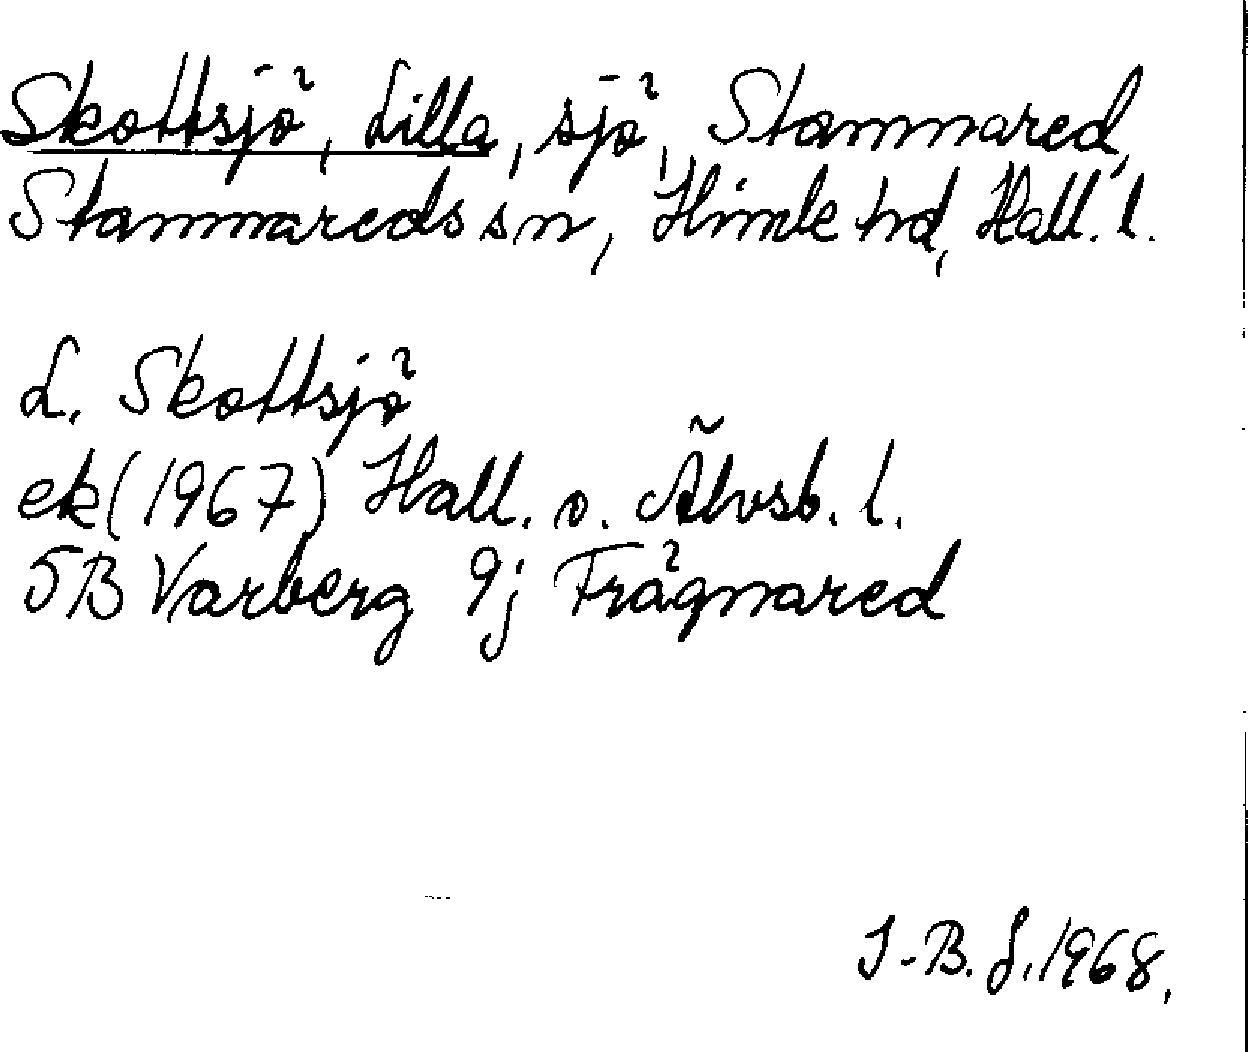 Skottsjö, Lilla, sjö, Stamnared,
Stamnareds sn, Himle hd, Hall. l.
L. Skottsjö
ek (1967) Hall. o. Älvsb. l.
5B Varberg 9j Frågnared
I-B. J. 1968.